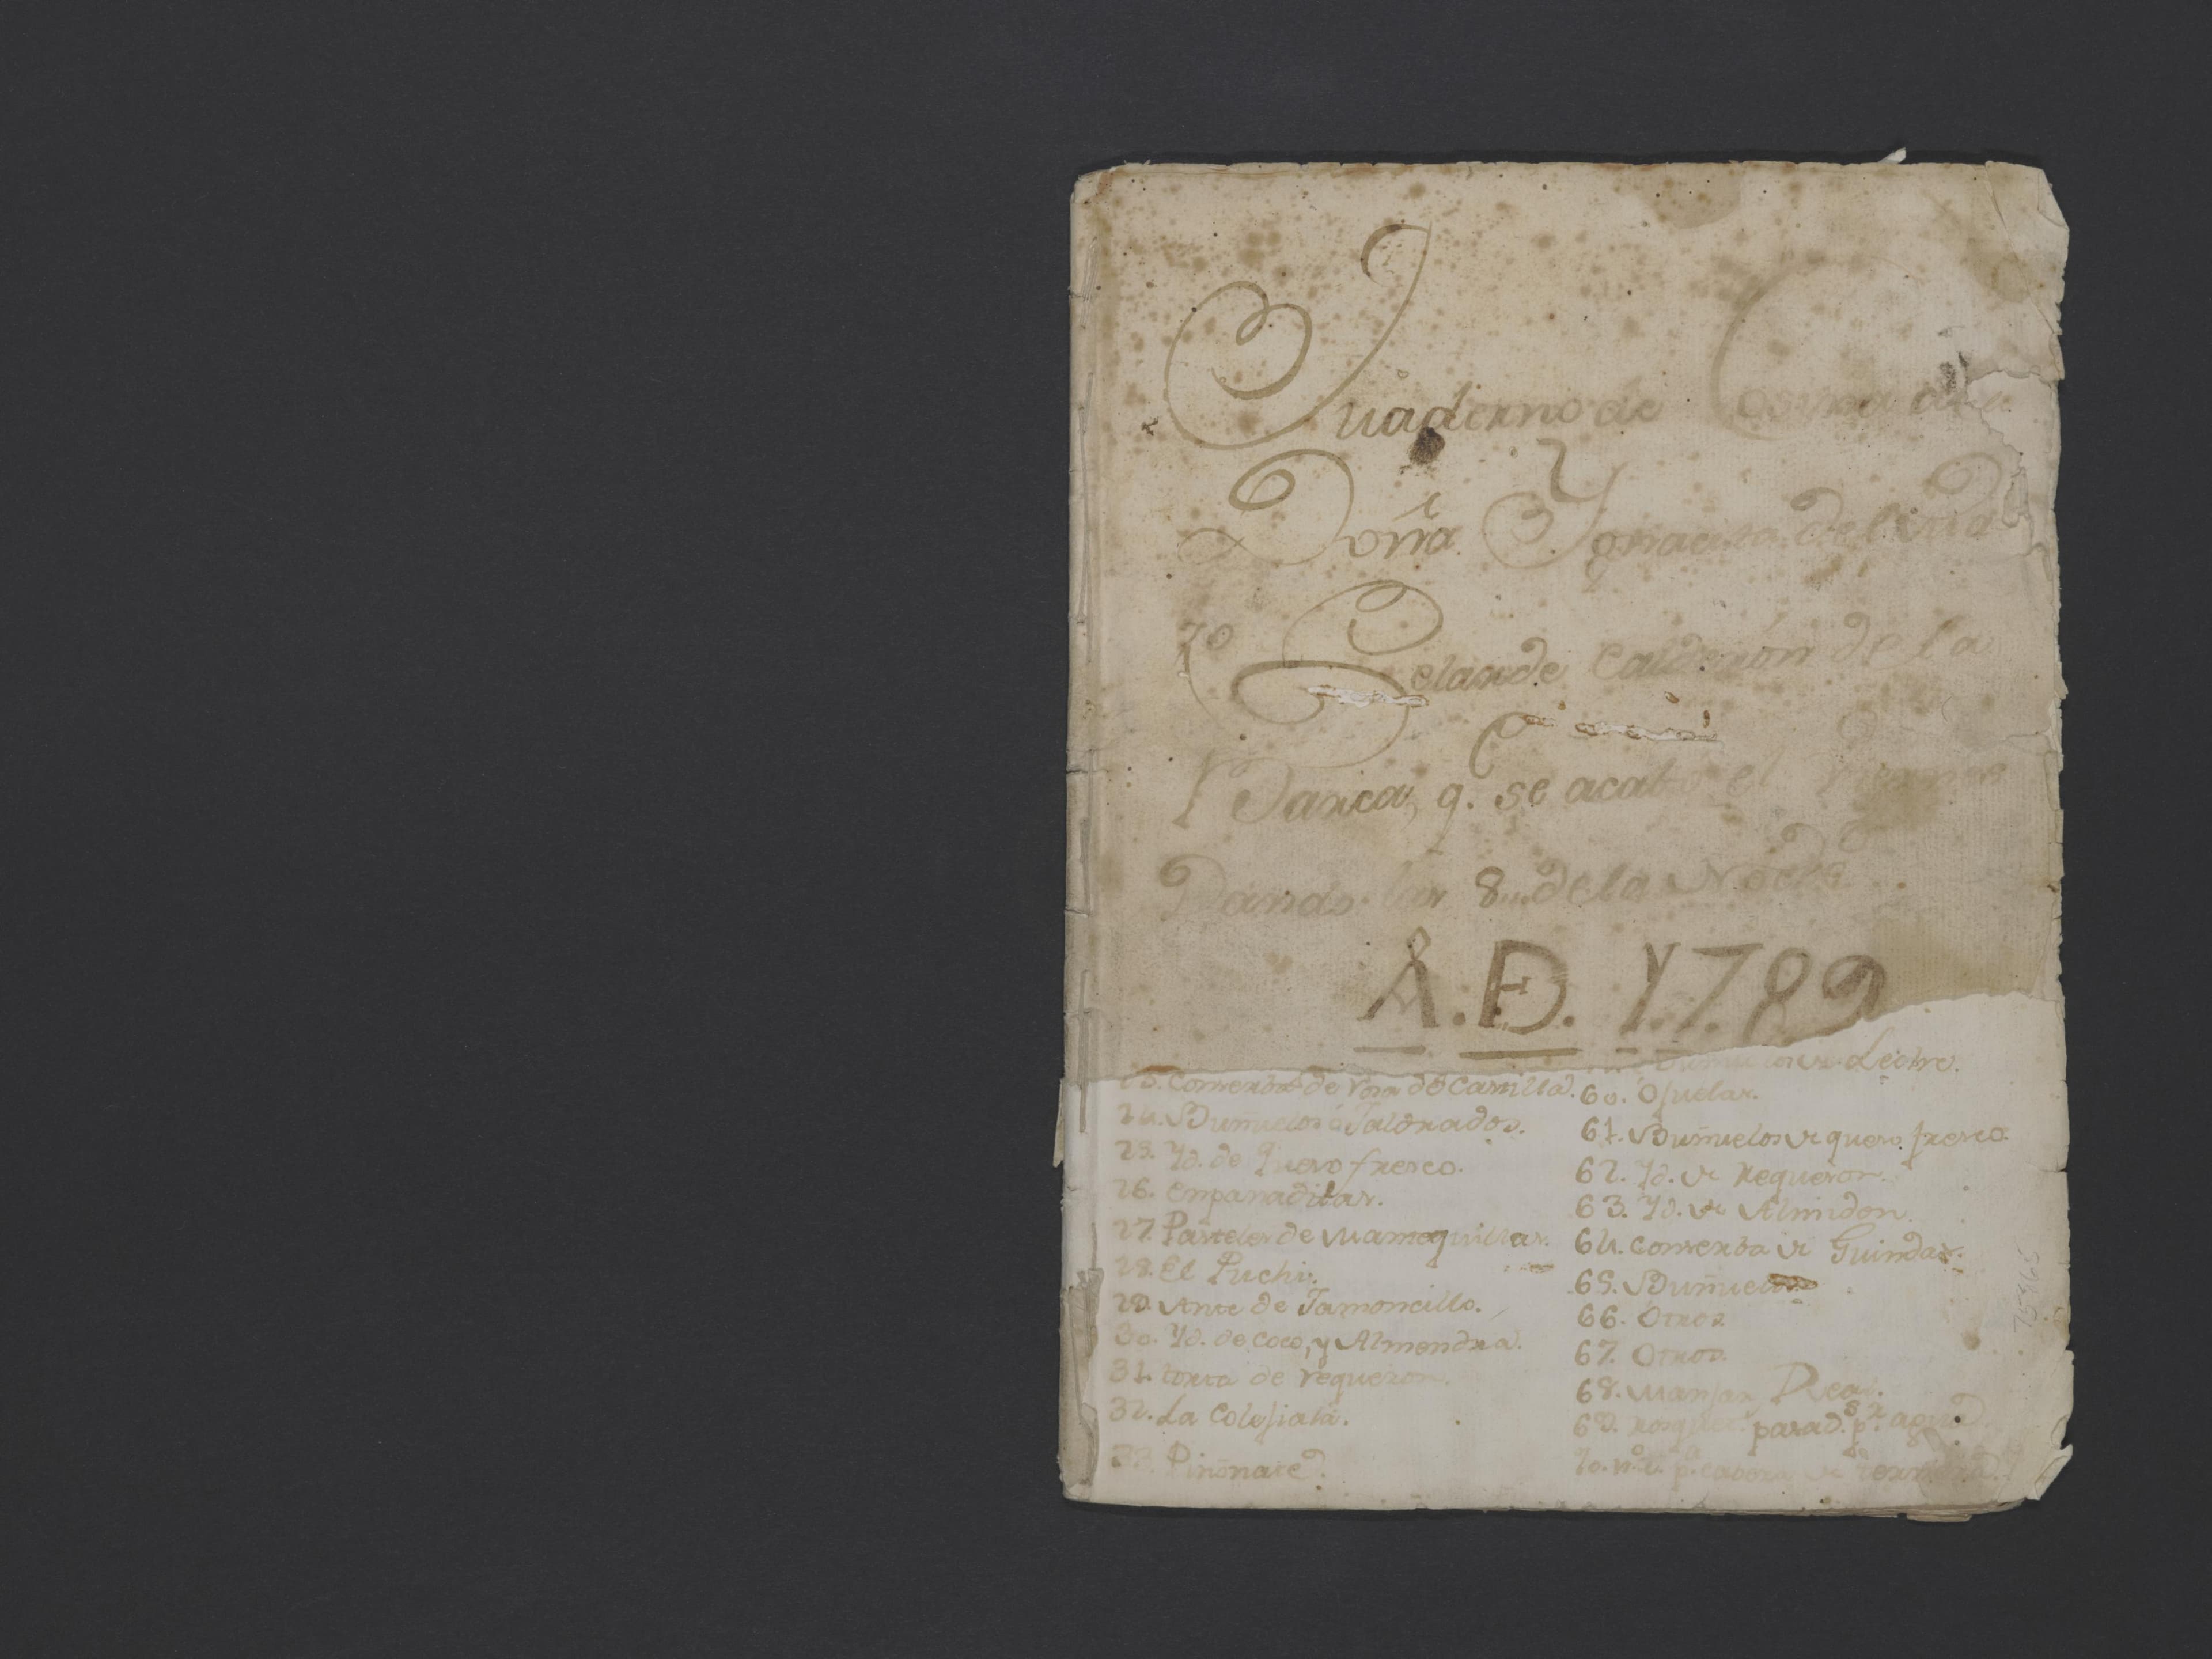 Quaderno de Cosina de la
Doña Ygnacita Delrrio
Yo
Velarde Calderon de la
Barca, q. se acabo el
Dando las 8,, de la Noche
A. D. 1789
Leche.
23. Conserba de rosa de Castilla.
24. Buñuelos
25. Yd. de Queso fresco.
26. Empanaditas.
27. Pasteles de Mantequillas.
28. El Puchi.
29. Ante de Jamoncillo.
30. Yd. de coco, y Almendra.
31. torta de requeson.
32. La Colejiala.
33. Piñonate.
60. Ojuelas.
61. Buñuelos de queso fresco.
62. Yd. de Requeson.
63. Yd. de Almidon.
64. Conserba de Guindas.
65. Buñuelos
66. Otros
67. Otros
68. Manjar Real.
69. pasad.s p.r agua.
70.